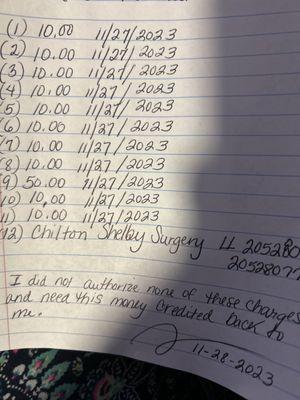 (1) 10.00 11/27/2023
(2) 10.00 11/27/2023
(3) 10.00 11/27/2023
(4) 10.00 11/27/2023
(5) 10.00 11/27/2023
(6) 10.00 11/27/2023
(7) 10.00 11/27/2023
(8) 10.00 11/27/2023
(9) 50.00 11/27/2023
10) 10.00 11/27/2023
11) 10.00 11/27/2023
12) Chilton Shelby Surgery LL 205280
2052807
I did not authorize none of these charges
and need this money credited back to
me.
11-28-2023